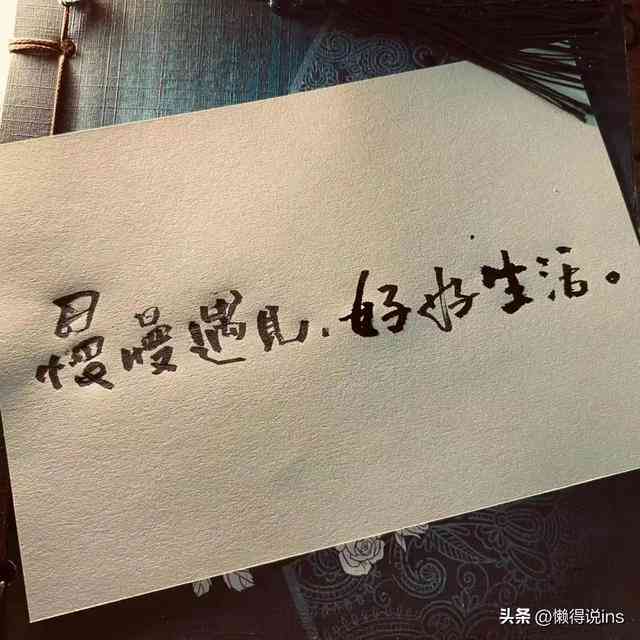 慢慢遇見，好好生活。
头条 @懒得说ins